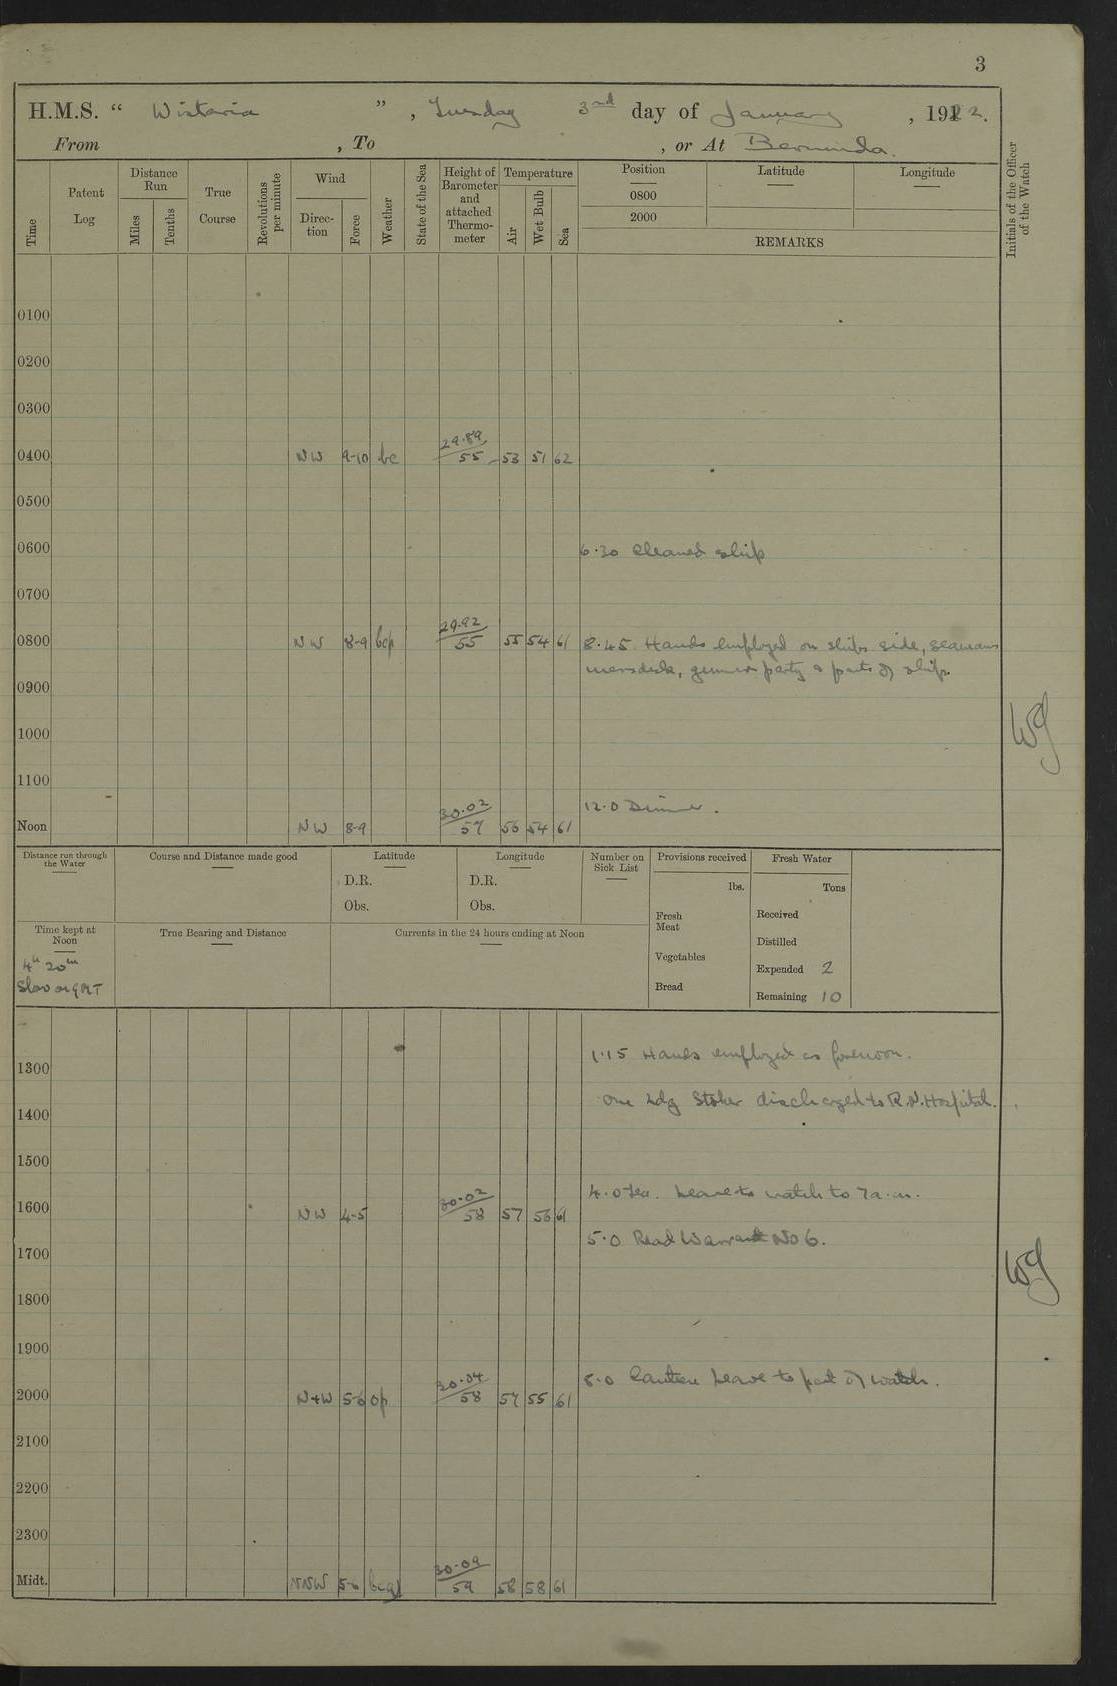 3
H.M.S. “ Wistaria ” , Tuesday 3rd day of January , 1922.
From , To , or At Bermuda.
Time
Patent Log
Distance Run
Miles
Tenths
True Course
Revolutions per minute
Wind
Direc-tion
Force
Weather
State of the Sea
Height of Barometer and attached Thermo-meter
Temperature
Air
Wet Bulb
Sea
Position
0800
2000
Latitude
Longitude
REMARKS
Initials of the Officer of the Watch
0100
0200
0300
0400 NW 9-10 bc 29.89 55 53 51 62
0500
0600 6.30 Cleaned ship
0700
0800 NW 8-9 bcp 29.92 55 55 54 61 8.45 Hands employed on ships side, seamans
messdeck, gunners party & parts of ship.
0900
1000 WJ
1100
12.0 Dinner.
Noon NW 8-9 30.02 57 56 54 61
Distance run through the Water
Course and Distance made good
Latitude
D.R.
Obs.
Longitude
D.R.
Obs.
Number on Sick List
Provisions received
lbs.
Fresh Meat
Vegetables
Bread
Fresh Water
Tons
Received
Distilled
Expended 2
Remaining 10
Time kept at Noon
4h 20m
Slow on GMT
True Bearing and Distance
Currents in the 24 hours ending at Noon
1.15 Hands employed as forenoon.
1300
One Ldg Stoker discharged to R.N. Hospital.
1400
1500
4.0 Tea. Leave to watch to 7 a.m.
1600 NW 4-5 30.02 58 57 56 61
5.0 Read Warrant No 6.
1700
1800
1900
8.0 Canteen Leave to part of watch.
2000 NxW 5-6 op 30.04 58 57 55 61
2100
2200
2300
Midt. NNW 5-6 30.09 59 58 58 61
WJ